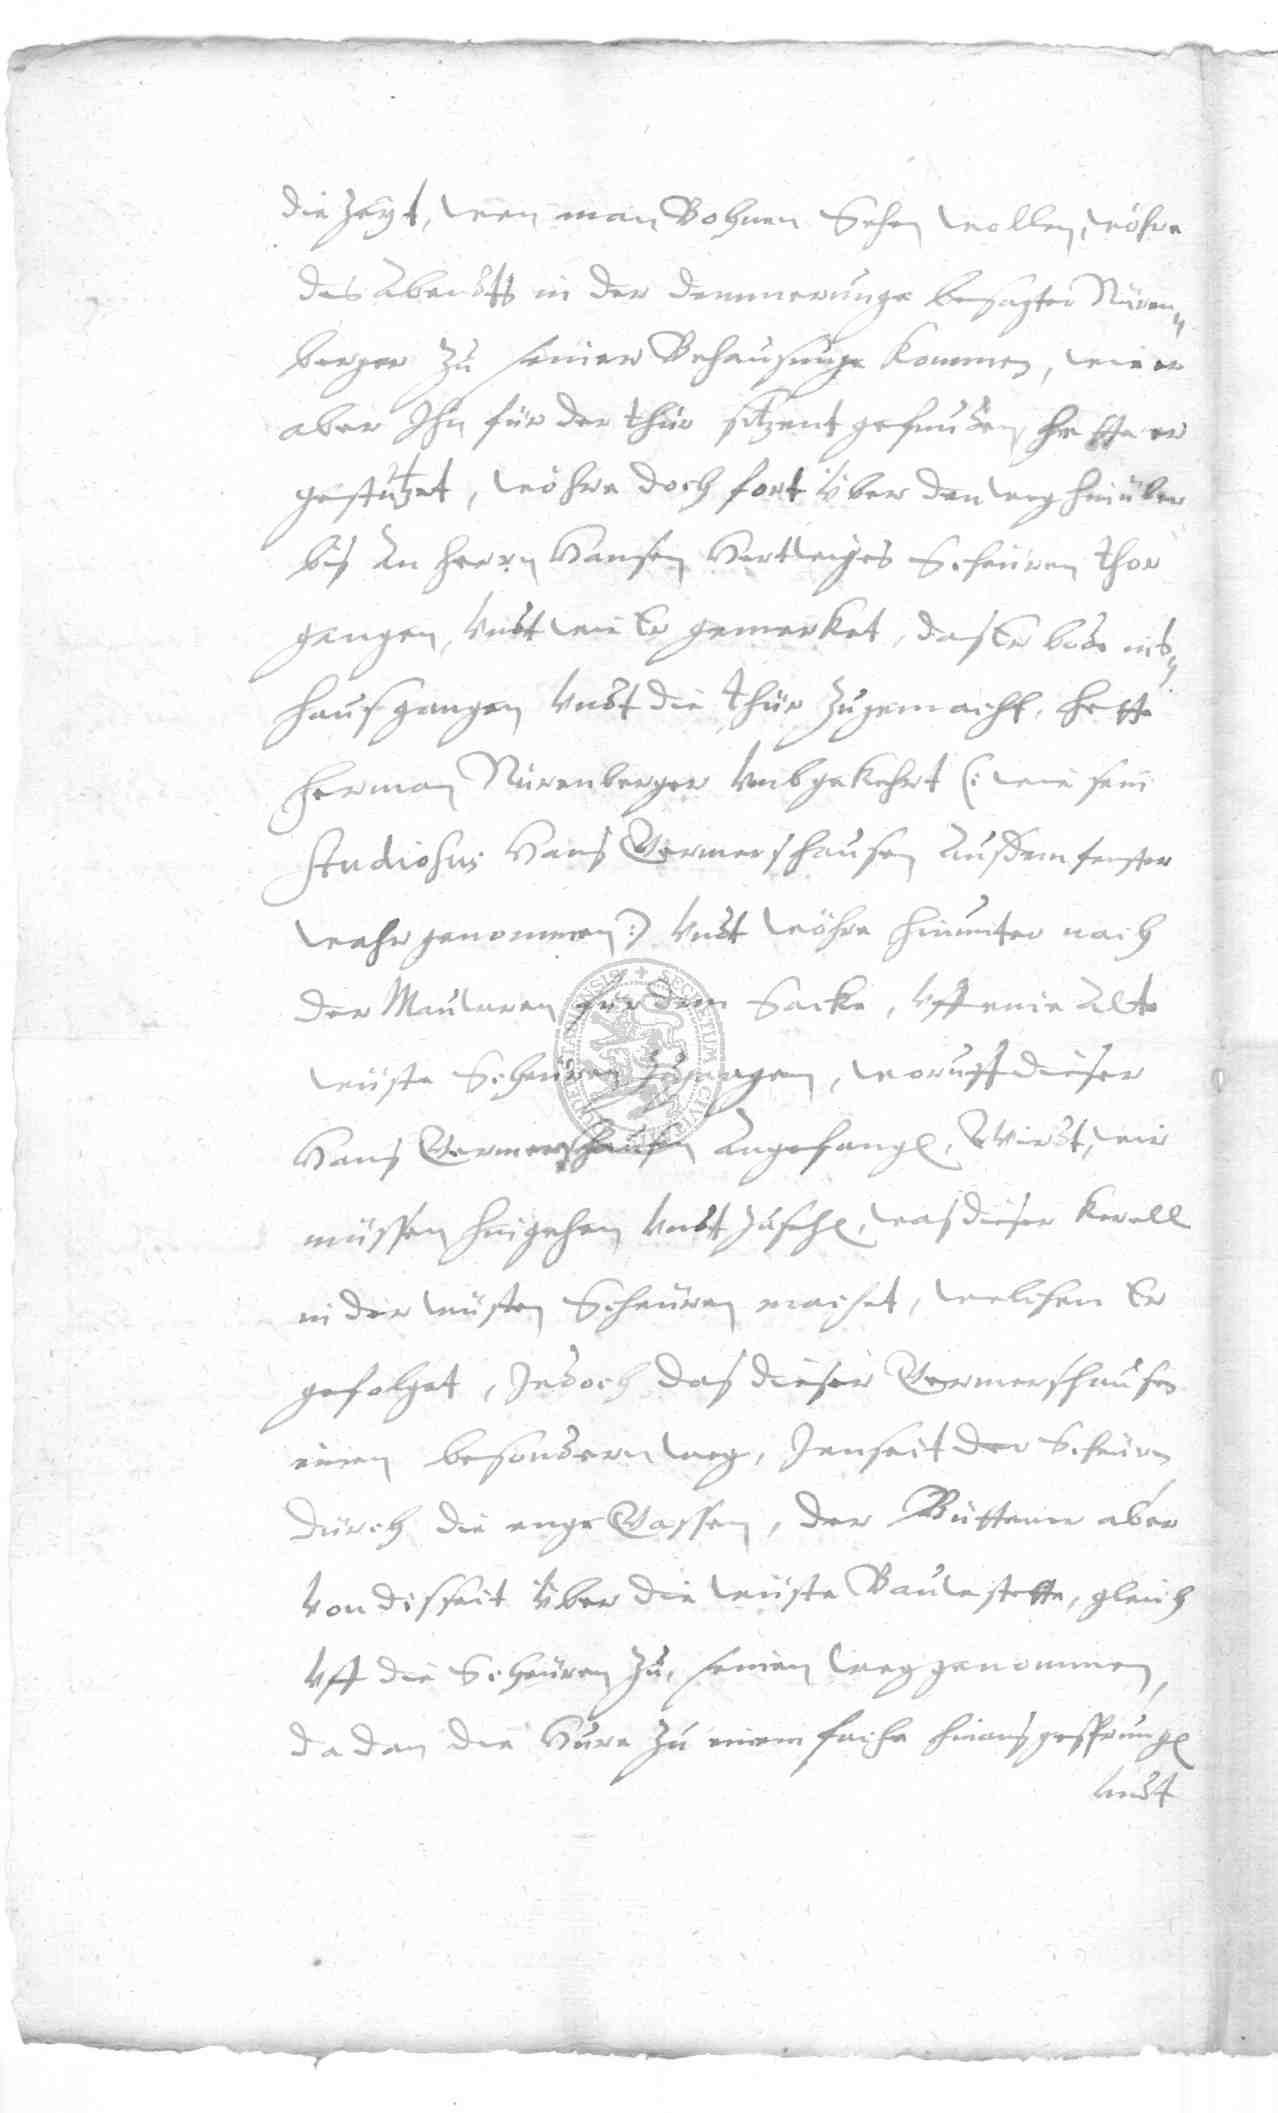 die Zeyt, wen man Bohnen Sehen wollen, wöhre
des Abendts in der demmerunge besagter Nüren„
berger zu seiner Behausunge kommen, wie er
aber Ihn für der thür sitzent gefunden hette er
gestutzet, wöhre doch fort über den weg hinüber
biß An herrn Hansen Hartwiges Scheuren thor
gangen, Undt wie Er gemerket, daß Er ins„
hauß gangen Undt die thür zugemacht, hette
Herman Nürenberger Umbgekehrt (: wie sein
studiosus Hans Germershausen Auß dem fenster
wahrgenommen :) Undt wöhre hinunter nach
der Mauwren für dem Sacke, Uff eine Alte
wüste Scheuren zugangen, woruff dieser
Hans Germershausen Angefangen, Wirdt, wir
müssen hingehen Undt zusehen, was dieser Kerell
in der wüsten Scheuren machet, welchem Er
gefolget, Jedoch das dieser Germershausen
einen besondern weg, Jenseit der Scheuren
durch die enge Gassen, der Büttener aber
von disseit über die wüste Bauwstette, gleich
Uff die Scheuren zu, seinen weg genommen,
da dan die Hure zu einem fache hinauß gesprungen
Undt
SECRETUM CIVI